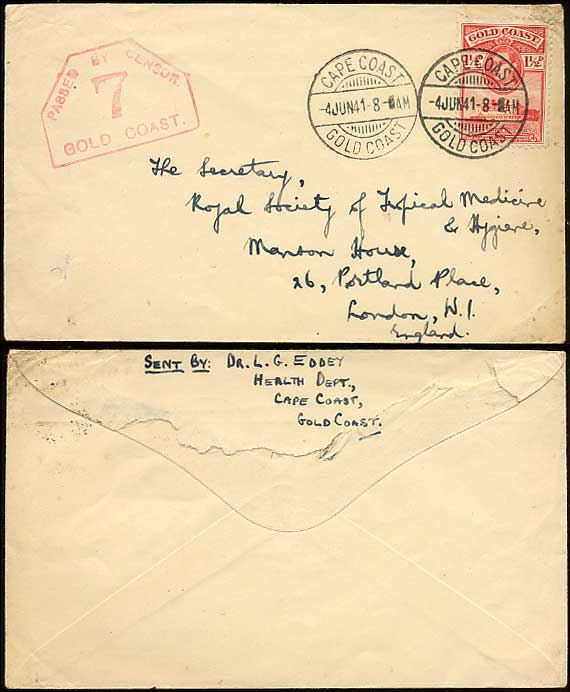 PASSED BY CENSOR.
7
GOLD COAST.
CAPE COAST
-4JUN41-8-AM
GOLD COAST
CAPE COAST
-4JUN41-8-AM
GOLD COAST
GOLD COAST
1½D
The Secretary,
Royal Society of Tropical Medicine
& Hygiene,
Manson House,
26, Portland Place,
London, W.1.
England.
SENT BY: DR. L. G. EDDEY
HEALTH DEPT.,
CAPE COAST,
GOLD COAST.